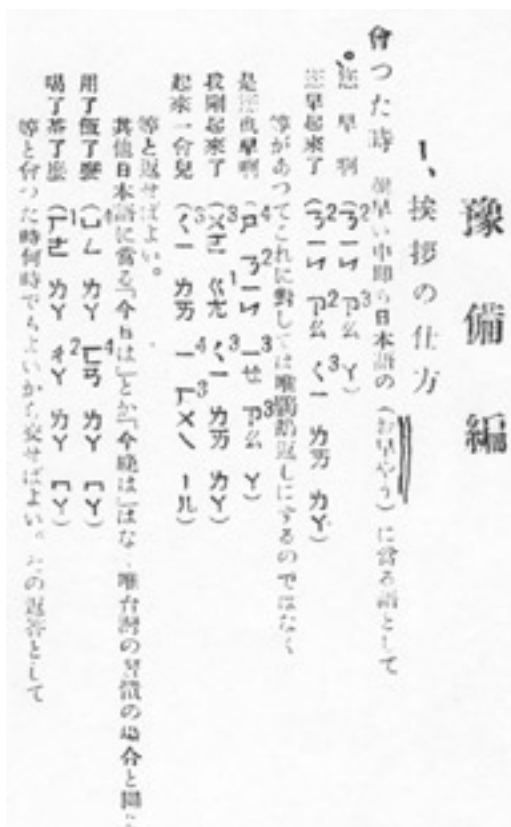 豫備編
1、挨拶の仕方
會つた時 朝早い中即ち日本語の(お早やう)に當る語として
您早啊 (ㄋㄧㄣ2 ㄗㄠ3 ㄚ)
您早起來了 (ㄋㄧㄣ2 ㄗㄠ2 ㄑㄧ3 ㄌㄞ ㄌㄚ)
等があつてこれに對しては唯鸚鵡返しにするのではなく
是您也早啊 (ㄕ4 ㄋㄧㄣ2 ㄧㄝ3 ㄗㄠ3 ㄚ)
我剛起來了 (ㄨㄛ3 ㄍㄤ1 ㄑㄧ3 ㄌㄞ ㄌㄚ)
起來一會兒 (ㄑㄧ3 ㄌㄞ ㄧ4 ㄏㄨㄟ3 ㄦ)
等と返せばよい。
其他日本語に當る「今日は」とか「今晩は」はなく唯台灣の習慣の場合と同
用了飯了麼 (ㄩㄥ4 ㄌㄚ ㄈㄢ4 ㄌㄚ ㄇㄚ)
喝了茶了麼 (ㄏㄜ1 ㄌㄚ ㄔㄚ2 ㄌㄚ ㄇㄚ)
等と會つた時何時でもよいから交せばよい。 の返答として